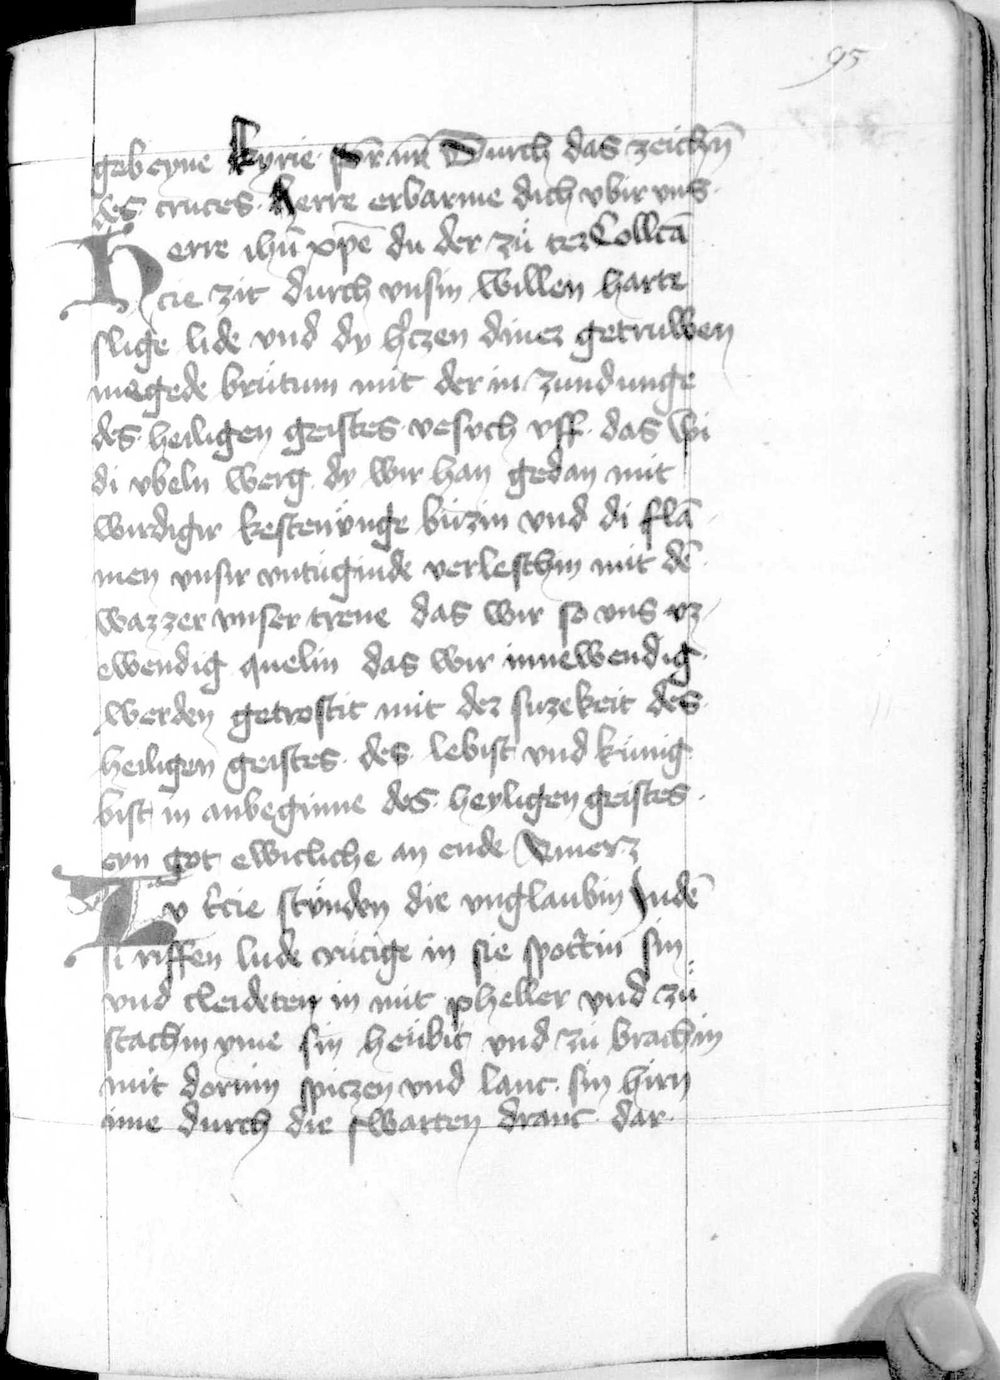 95
geb eyne kyrie pr̄ nr̄ Durch das zeichn̄
des cruces. herre erbarme dich vbir vns.
Herre ihū xp̄e du der zů ter Collcā
cie zit durch vnsin willen harte
sluge lide vnd dy h̓czen diner getruwen
megede brutum mit der in zundunge
des heiligen geistes vesvch vff das wi
di vbeln werg dy wir han gedan mit
wirdigir kestenůnge bůzin vnd di flā
men vnsir vntůginde verleschin mit dē
wazzer vnser trene das wir so vns vz
ewendig quelin das wir innewendig
werden getrostit mit der suzekeit des
heiligen geistes. des lebist vnd kůnig
bist in anbeginne des heyligen geistes.
eyn got ewicliche an ende Vmerz
Tv t̓cie stůnden die vnglaubin Judē
si riffen lude crucige in sie spottin sin
vnd cleideten in mit pheller vnd zů
stachin yme sin heůbit vnd zů brachin
mit dornin spiczen vnd lanc. sin hirn
ime durch die swarten dranc dar